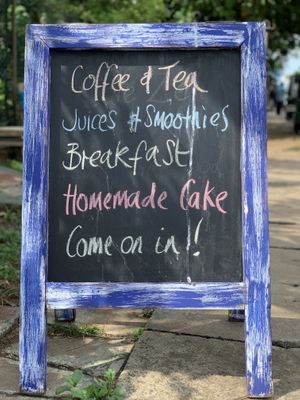 Coffee & Tea
Juices & #Smoothies
Breakfast
Homemade Cake
Come on in!!